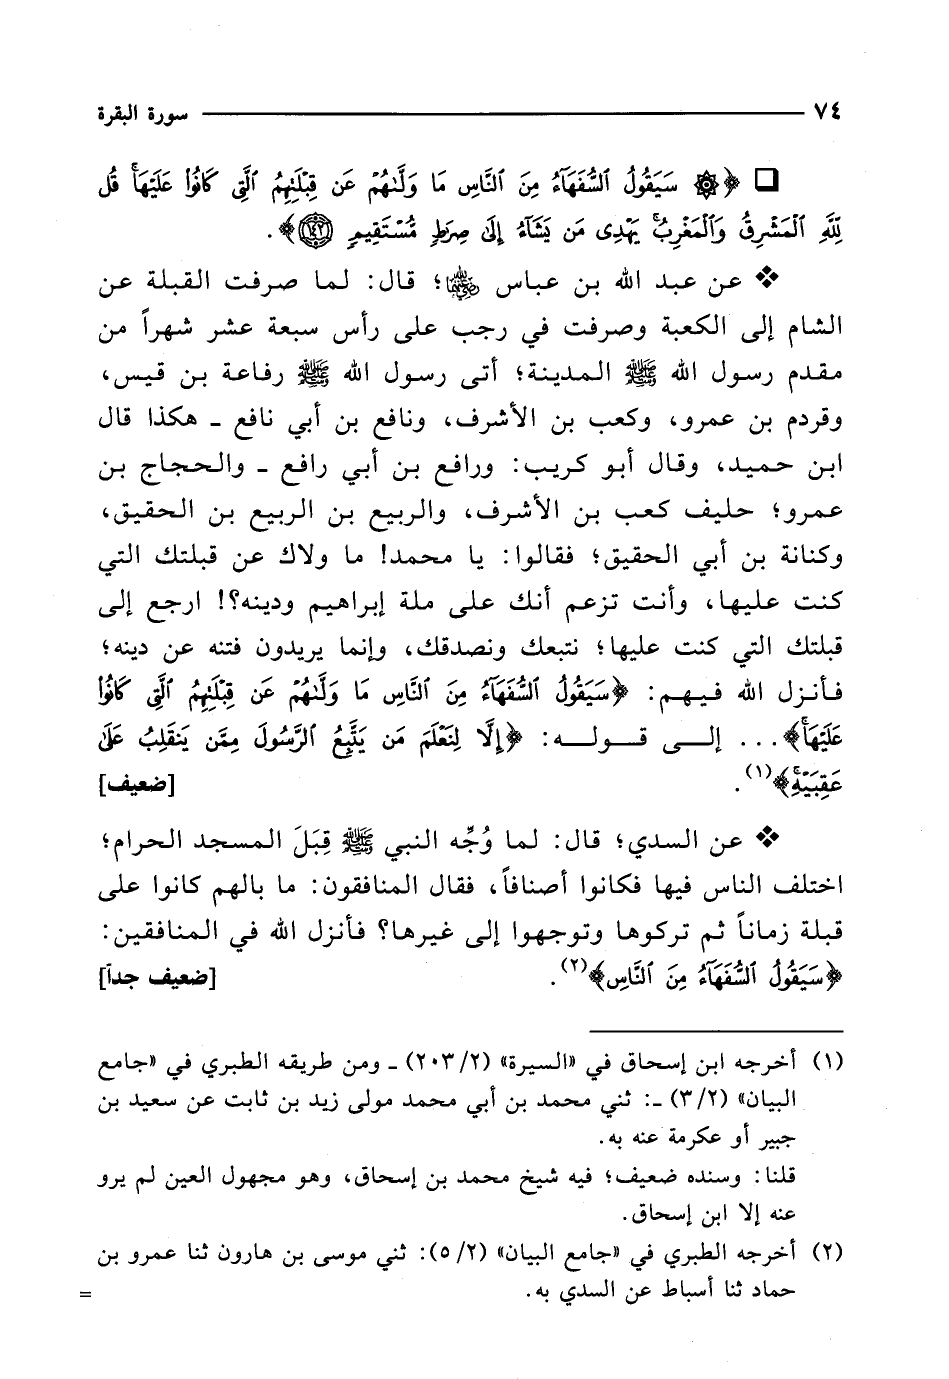 ٧٤ سورة البقرة
❏ ﴿۞ سَيَقُولُ ٱلسُّفَهَآءُ مِنَ ٱلنَّاسِ مَا وَلَّىٰهُمْ عَن قِبْلَتِهِمُ ٱلَّتِى كَانُوا۟ عَلَيْهَا ۚ قُل
لِّلَّهِ ٱلْمَشْرِقُ وَٱلْمَغْرِبُ ۚ يَهْدِى مَن يَشَآءُ إِلَىٰ صِرَٰطٍ مُّسْتَقِيمٍ ﴿١٤٢﴾﴾.
❖ عن عبد الله بن عباس رضي الله عنهما؛ قال: لما صرفت القبلة عن
الشام إلى الكعبة وصرفت في رجب على رأس سبعة عشر شهراً من
مقدم رسول الله ﷺ المدينة؛ أتى رسول الله ﷺ رفاعة بن قيس،
وقردم بن عمرو، وكعب بن الأشرف، ونافع بن أبي نافع ـ هكذا قال
ابن حميد، وقال أبو كريب: ورافع بن أبي رافع ـ والحجاج بن
عمرو؛ حليف كعب بن الأشرف، والربيع بن الربيع بن الحقيق،
وكنانة بن أبي الحقيق؛ فقالوا: يا محمد! ما ولاك عن قبلتك التي
كنت عليها، وأنت تزعم أنك على ملة إبراهيم ودينه؟! ارجع إلى
قبلتك التي كنت عليها؛ نتبعك ونصدقك، وإنما يريدون فتنه عن دينه؛
فأنزل الله فيهم: ﴿سَيَقُولُ ٱلسُّفَهَآءُ مِنَ ٱلنَّاسِ مَا وَلَّىٰهُمْ عَن قِبْلَتِهِمُ ٱلَّتِى كَانُوا۟
عَلَيْهَا ۚ﴾... إلى قوله: ﴿إِلَّا لِنَعْلَمَ مَن يَتَّبِعُ ٱلرَّسُولَ مِمَّن يَنقَلِبُ عَلَىٰ
عَقِبَيْهِ ۚ﴾(١). [ضعيف]
❖ عن السدي؛ قال: لما وُجِّه النبي ﷺ قِبَلَ المسجد الحرام؛
اختلف الناس فيها فكانوا أصنافاً، فقال المنافقون: ما بالهم كانوا على
قبلة زماناً ثم تركوها وتوجهوا إلى غيرها؟ فأنزل الله في المنافقين:
﴿سَيَقُولُ ٱلسُّفَهَآءُ مِنَ ٱلنَّاسِ﴾(٢). [ضعيف جداً]
(١) أخرجه ابن إسحاق في «السيرة» (٢/ ٢٠٣) ـ ومن طريقه الطبري في «جامع
البيان» (٢/ ٣) ـ: ثني محمد بن أبي محمد مولى زيد بن ثابت عن سعيد بن
جبير أو عكرمة عنه به.
قلنا: وسنده ضعيف؛ فيه شيخ محمد بن إسحاق، وهو مجهول العين لم يرو
عنه إلا ابن إسحاق.
(٢) أخرجه الطبري في «جامع البيان» (٢/ ٥): ثني موسى بن هارون ثنا عمرو بن
حماد ثنا أسباط عن السدي به. =